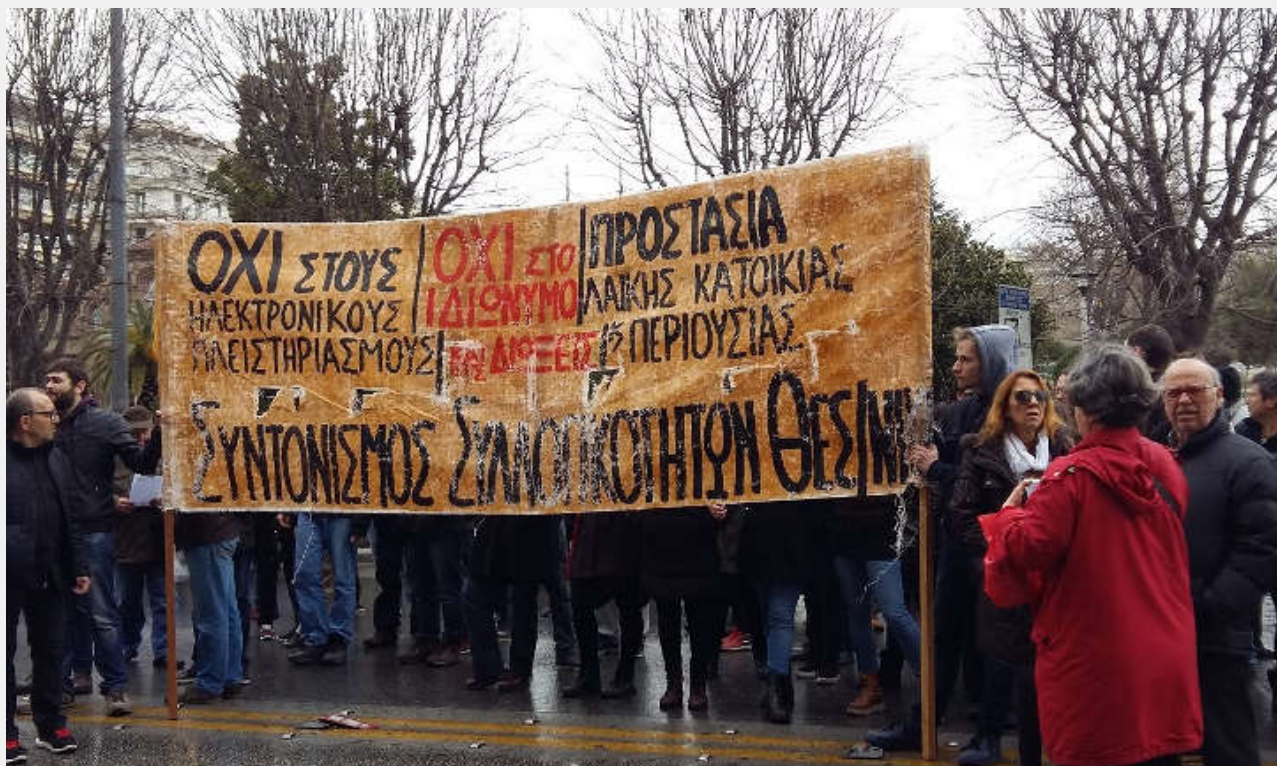 ΟΧΙ ΣΤΟΥΣ
ΗΛΕΚΤΡΟΝΙΚΟΥΣ
ΠΛΕΙΣΤΗΡΙΑΣΜΟΥΣ
ΟΧΙ ΣΤΟ
ΙΔΙΩΝΥΜΟ
ΤΙΣ ΔΙΩΞΕΙΣ
ΠΡΟΣΤΑΣΙΑ
ΛΑΪΚΗΣ ΚΑΤΟΙΚΙΑΣ
ΠΕΡΙΟΥΣΙΑΣ
ΣΥΝΤΟΝΙΣΜΟΣ ΣΥΛΛΟΓΙΚΟΤΗΤΩΝ ΘΕΣ/ΝΙΚ